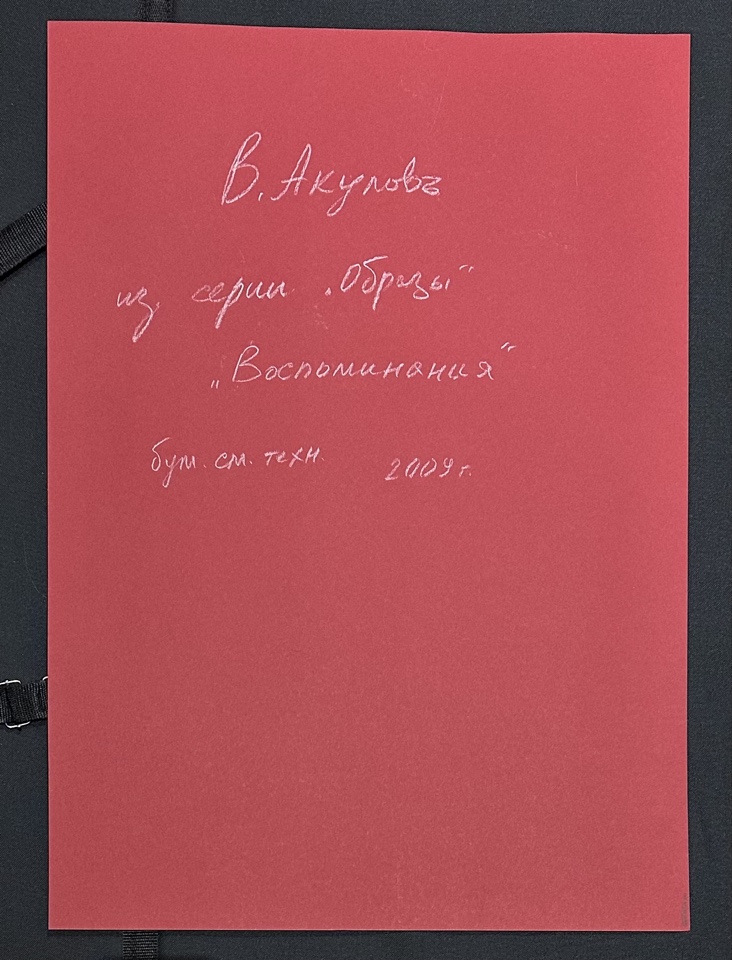 В. Акуловъ
из серии „Образы“
„Воспоминания“
бум. см. техн. 2009 г.